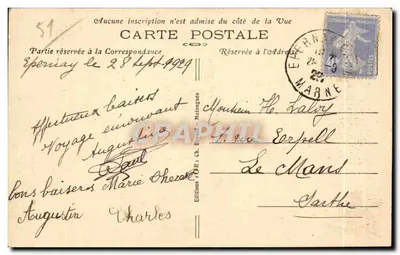 51
Aucune inscription n'est admise du côté de la Vue
CARTE POSTALE
Partie réservée à la Correspondance
Réservée à l'Adresse
Epernay le 28 Sept 1929
EPERNAY
MARNE
Affectueux baisers
Voyage émouvant
Augustine
Paul
Bons baisers Marie
Augustin Charles
Monsieur H.
Rue
Le Mans
Sarthe
Editions "OR"
CPARAMA